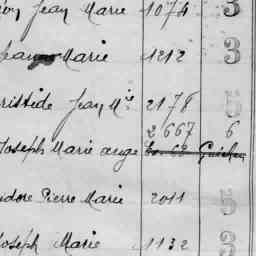 Jean Marie 1074 3
Jean Marie 1212 3
Aristide Jean Mie 2178 5
2667 6
Joseph Marie ange Guichen
Pierre Marie 2011 5
Joseph Marie 1132 3